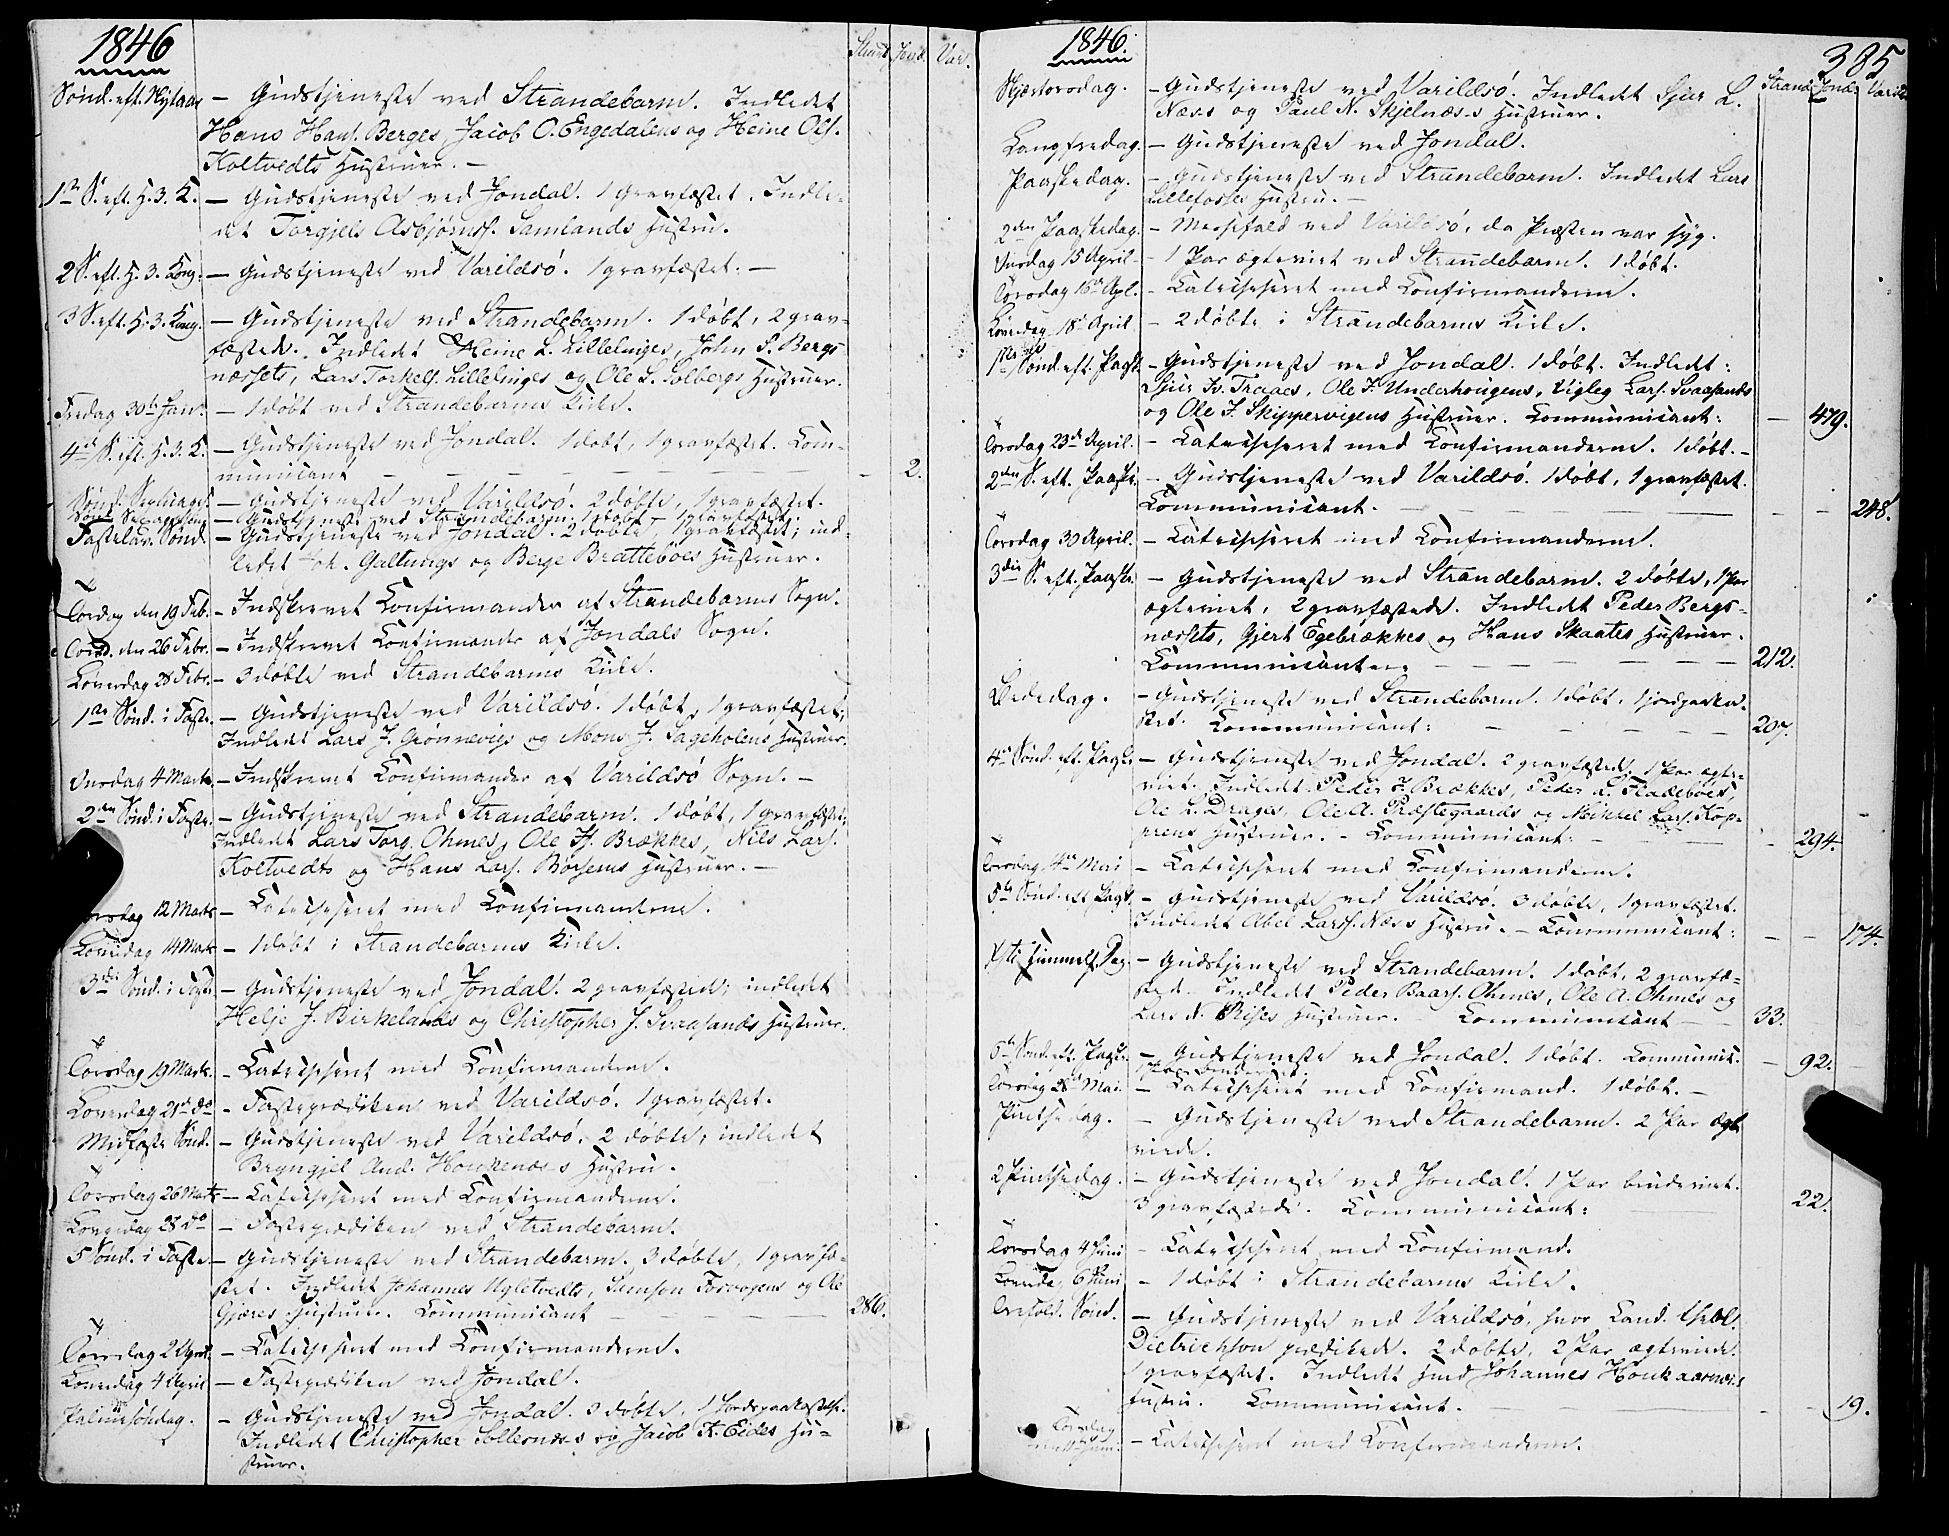 1846
Strand. Jond. Var.
Sönd. eft. Nytaar — Gudstjeneste ved Strandebarm. Indledet
Hans Hans. Berges, Jacob O. Engedalens og Heine Ols.
Koltvedts Hustruer. —
1ste S. eft. H. 3. K. — Gudstjeneste ved Jondal. 1 gravfæstet. Indle-
det Torgjels Asbjørns. Samlands Hustru.
2 S. eft. H. 3. Kong. — Gudstjeneste ved Varildsö. 1 gravfæstet. —
3 S. eft. H. 3. Kong. — Gudstjeneste ved Strandebarm. 1 døbt, 2 grav-
fæstede. Indledet Heine L. Lillelinges, John S. Bergs-
næssets, Lars Torkels. Lillelinges og Ole L. Solbergs Hustruer.
Fredag 30te Jan. — 1 døbt ved Strandebarms Kirke.
4de S. eft. H. 3. K. — Gudstjeneste ved Jondal. 1 døbt, 1 gravfæstet. Com-
municant — — — 2.
Sönd. Septuages. — Gudstjeneste ved Varildsö. 2 döbte, 1 gravfæstet.
— Gudstjeneste ved Strandebarm. 1 døbt, 1 gravfæstet.
Fastelav. Sönd. — Gudstjeneste ved Jondal. 2 döbte, 1 gravfæstet; ind-
ledet Joh. Galtungs og Berge Bratteböes Hustruer.
Torsdag den 19 Feb. — Indskrevet Confirmander af Strandebarms Sogn.
Torsd. den 26 Febr. — Indskrevet Confirmander af Jondals Sogn.
Löverdag 28 Febr. — 3 döbte ved Strandebarms Kirke.
1ste Sönd. i Faste. — Gudstjeneste ved Varildsö. 1 döbt, 1 gravfæstet,
Indledet Lars J. Grönnevigs og Mons J. Sageholens Hustruer.
Onsdag 4 Marts. — Indskrevet Confirmander af Varildsö Sogn. —
2den Sönd. i Faste. — Gudstjeneste ved Strandebarm. 1 döbt, 1 gravfæstet;
Indledet Lars Torg. Ohmes, Ole H. Brækkes, Nils Lars.
Koltvedts og Hans Lars. Börsems Hustruer. —
Torsdag 12 Marts — Catechiseret med Confirmanderne.
Löverdag 14 Marts — 1 döbt i Strandebarms Kirke.
3die Sönd. i Faste — Gudstjeneste ved Jondal. 2 gravfæstede; indledet
Helje J. Birkelands og Christopher J. Svaasands Hustruer.
Torsdag 19 Marts. — Catechiseret med Confirmanderne.
Löverdag 21de do — Fasteprædiken ved Varildsö. 1 gravfæstet.
Midfaste Sönd. — Gudstjeneste ved Varildsö. 2 döbte, indledet
Bryngjel And. Houkenæss Hustru.
Torsdag 26 Marts — Catechiseret med Confirmanderne.
Löverdag 28 do — Fasteprædiken ved Strandebarm.
5 Sönd. i Faste — Gudstjeneste ved Strandebarm. 3 döbte, 1 gravfæ-
stet. Indledet Johannes Ugletvedts, Samson Fosvogens og Ole
Gjæres Hustruer. Communicant — — — 286.
Torsdag 2 April — Catechiseret med Confirmanderne.
Löverdag 4 April — Fasteprædiken ved Jondal.
Palmesöndag. — Gudstjeneste ved Jondal. 3 döbte. 1 Jordspaakastelse.
Indledet Christopher Solternæss og Jacob K. Eides Hu-
struer.
1846.
385
Strand. Jond. Varild.
Skjærtorsdag. — Gudstjeneste ved Varildsö. Indledet Sjur L.
Næss og Paul N. Skjelnæss Hustruer.
Langfredag. — Gudstjeneste ved Jondal.
Paaskedag. — Gudstjeneste ved Strandebarm. Indledet Lars
Lillefosses Hustru. —
2den Paaskedag. — Messefald ved Varildsö, da Præsten var syg.
Onsdag 15 April — 1 Par ægteviet ved Strandebarm. 1 döbt.
Torsdag 16de Apl. — Catechiseret med Confirmanderne.
Löverdag 18de April — 2 döbte i Strandebarms Kirke.
1ste Sönd. eft. Paask. — Gudstjeneste ved Jondal. 1 döbt. Indledet:
Sjur Iv. Traaes, Ole J. Underhougens, Vigleg Lars. Svaasands
og Ole J. Skippervigens Hustruer. Communicant: — 479.
Torsdag 23de April. — Catechiseret med Confirmanderne. 1 döbt. —
2den S. eft. Paaske. — Gudstjeneste ved Varildsö. 1 döbt, 1 gravfæstet.
Communicant. — — — 248.
Torsdag 30 April. — Catechiseret med Confirmanderne.
3die S. eft. Paaske. — Gudstjeneste ved Strandebarm. 2 döbte, 1 Par
ægteviet, 2 gravfæstede. Indledet Peder Bergs-
næssets, Gjert Egebrækkes og Hans Skaates Hustruer.
Communicanter: — — — 212.
Bededag. — Gudstjeneste ved Strandebarm. 1 döbt, 1 jordpaaka-
stet. Communicant: — — — 207.
4de Sönd. eft. Paaske — Gudstjeneste ved Jondal. 2 gravfæstede, 1 Par ægte-
viet. Indledet Peder J. Brækkes, Peder L. Fladeböes,
Ole L. Drages, Ole A. Præstegaards og Mikkel Lars. Kop-
rens Hustruer. — Communicant: — — 294.
Torsdag Mai — Catechiseret med Confirmanderne.
5te Sönd. eft. Paask. — Gudstjeneste ved Varildsö. 3 döbte, 1 gravfæstet.
Indledet Abel Larss. Næss Hustru. — Communicant: — — 174.
Xsti Himmelf. Dag. — Gudstjeneste ved Strandebarm. 1 döbt, 2 gravfæ-
sted. Indledet Peder Baars. Ohmes, Ole A. Ohmes og
Lars N. Rises Hustruer. Communicant — — 33.
6te Sönd. eft. Paaske. — Gudstjeneste ved Jondal. 1 döbt. Communic. — 92.
1 Par brudeviet.
Torsdag 28de Mai. — Catechiseret med Confirmand. 1 döbt. —
Pintsedag. — Gudstjeneste ved Strandebarm. 2 Par ægte
viede.
2 Pintsedag. — Gudstjeneste ved Jondal. 1 Par brudeviet.
3 gravfæstede. Communicant: — 22.
Torsdag 4 Juni — Catechiseret med Confirmand.
Löverda, 6 Juni — 1 döbt i Strandebarms Kirke.
Trefold. Sönd. — Gudstjeneste ved Varildsö, hvor Cand. theol.
Dietrichson prædikede. 2 döbte, 2 Par ægteviede.
1 gravfæstet. Indledt Johannes Houkaaness
Hustru. Communicant. — — 19.
Torsdag Juni — Catechiseret med Confirmanderne.